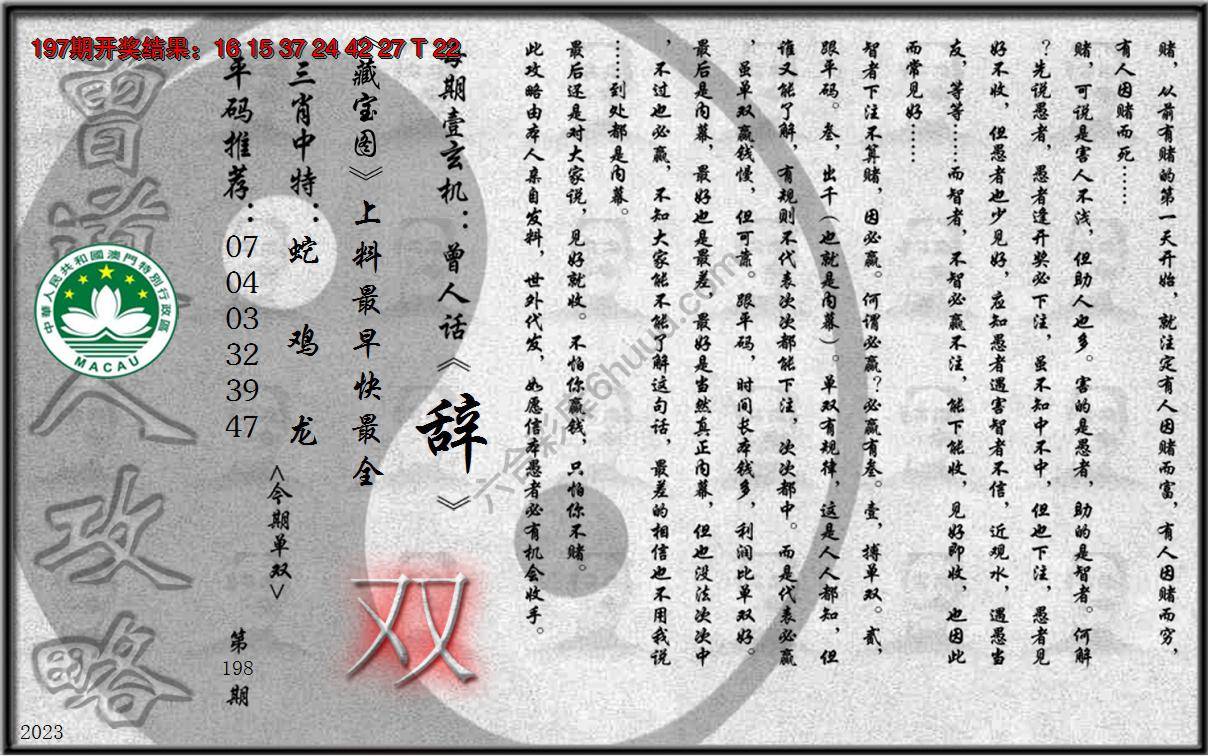 197期开奖结果：16 15 37 24 42 27 T 22
赌，从前有赌的第一天开始，就注定有人因赌而富，有人因赌而穷，
有人因赌而死……
赌，可说是害人不浅，但助人也多。害的是愚者，助的是智者。何解
？先说愚者，愚者逢开奖必下注，虽不知中不中，但也下注，愚者见
好不收，但愚者也少见好，应知愚者遇害智者不信，近观水，遇愚当
友，等等……而智者，不智必赢不注，能下能收，见好即收，也因此
而常见好……
智者下注不算赌，因必赢。何谓必赢？必赢有叁。壹，搏单双。贰，
跟平码。叁，出千（也就是内幕）。单双有规律，这是人人都知，但
谁又能了解，有规则不代表次次都能下注，次次都中。而是代表必赢
，虽单双赢钱慢，但可靠。跟平码，时间长本钱多，利润比单双好。
最后是内幕，最好也是最差，最好是当然真正内幕，但也没法次次中
，不过也必赢，不知大家能不能了解这句话，最差的相信也不用我说
……到处都是内幕。
最后还是对大家说，见好就收。不怕你赢钱，只怕你不赌。
此攻略由本人亲自发料，世外代发，如愿信本愚者必有机会收手。
每期壹玄机：曾人话《辞》
《藏宝图》上料最早快最全
三肖中特：蛇 鸡 龙
<今期单双>
双
平码推荐：
07
04
03
32
39
47
第
198
期
曾道人攻略
中華人民共和國澳門特別行政區
MACAU
六合彩库6huuu.com
2023